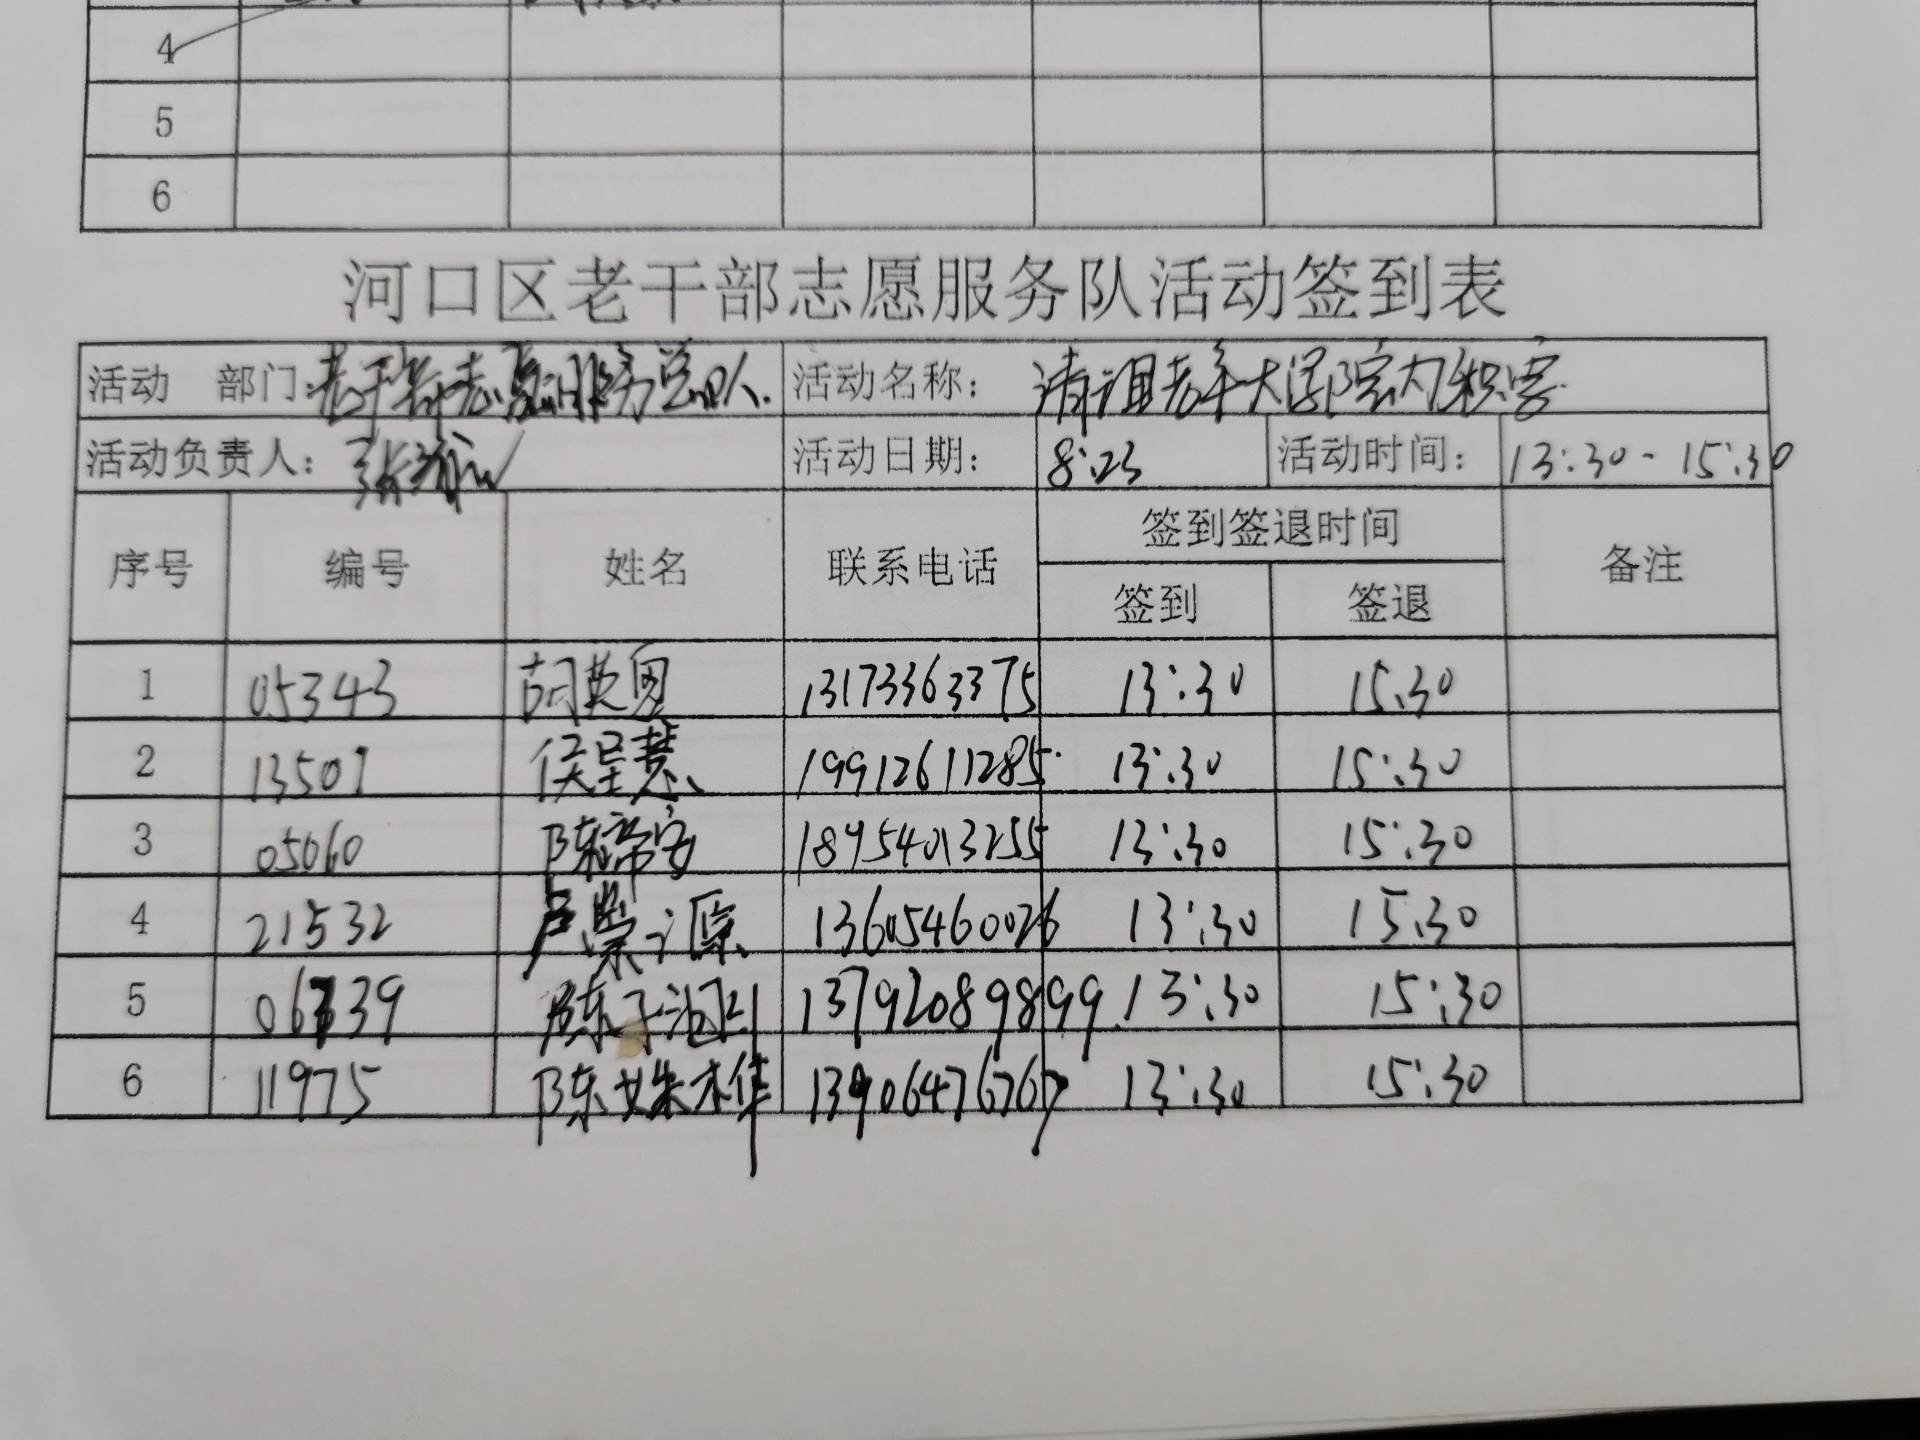 4
5
6
河口区老干部志愿服务队活动签到表
活动 部门：老干部志愿服务总队 活动名称： 清理老年大学院内积雪
活动负责人： 张 活动日期： 8:23 活动时间： 13:30-15:30
序号 编号 姓名 联系电话 签到签退时间 备注
签到 签退
1 05343 胡英恩 13173363375 13:30 15.30
2 13507 侯星慧 19912611285 13:30 15:30
3 05060 陈希安 18954013255 13:30 15:30
4 21532 卢崇源 13605460026 13:30 15.30
5 06739 陈 13792089899 13:30 15:30
6 11975 陈 13906476767 13:30 15:30